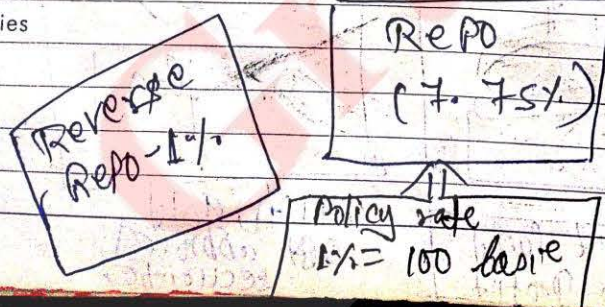 ies
Reverse
Repo-1%
Repo
(7.75%)
Policy rate
1%= 100 basic